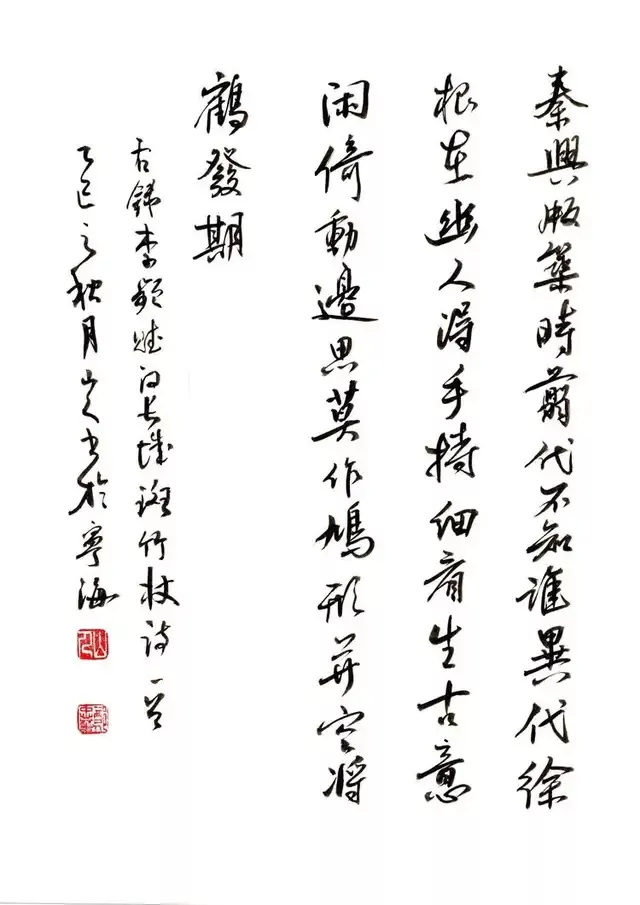 秦興版築時翦代不知誰異代徐
根在幽人得手持细看生古意
闲倚動邊思莫作鳩形并空将
鶴發期
右錄李频赋得长城斑竹杖诗一首
乙巳之秋月山人书於寧海